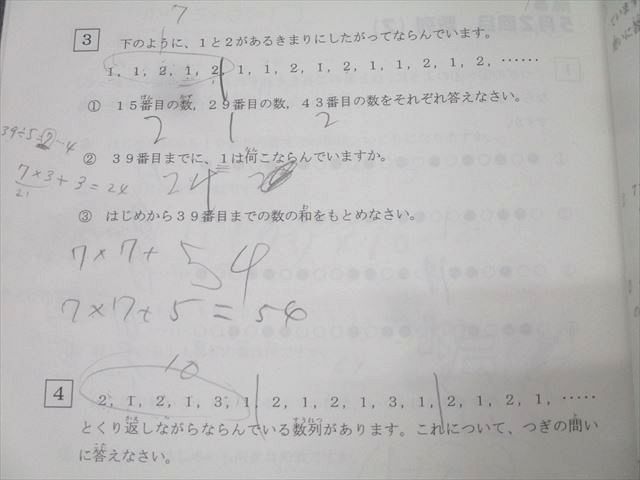 7
3 下のように、1と2があるきまりにしたがってならんでいます。
1, 1, 2, 1, 2, 1, 1, 2, 1, 2, 1, 1, 2, 1, 2, ……
① 15番目の数, 29番目の数, 43番目の数をそれぞれ答えなさい。
2 1 2
39÷5=7…4
② 39番目までに, 1は何こならんでいますか。
7×3+3=24
21
24
③ はじめから39番目までの数の和をもとめなさい。
7×7+ 54
7×7+5=54
10
4 2, 1, 2, 1, 3, 1, 2, 1, 2, 1, 3, 1, 2, 1, 2, 1, ……
とくり返しながらならんでいる数列があります。これについて、つぎの問い
に答えなさい。